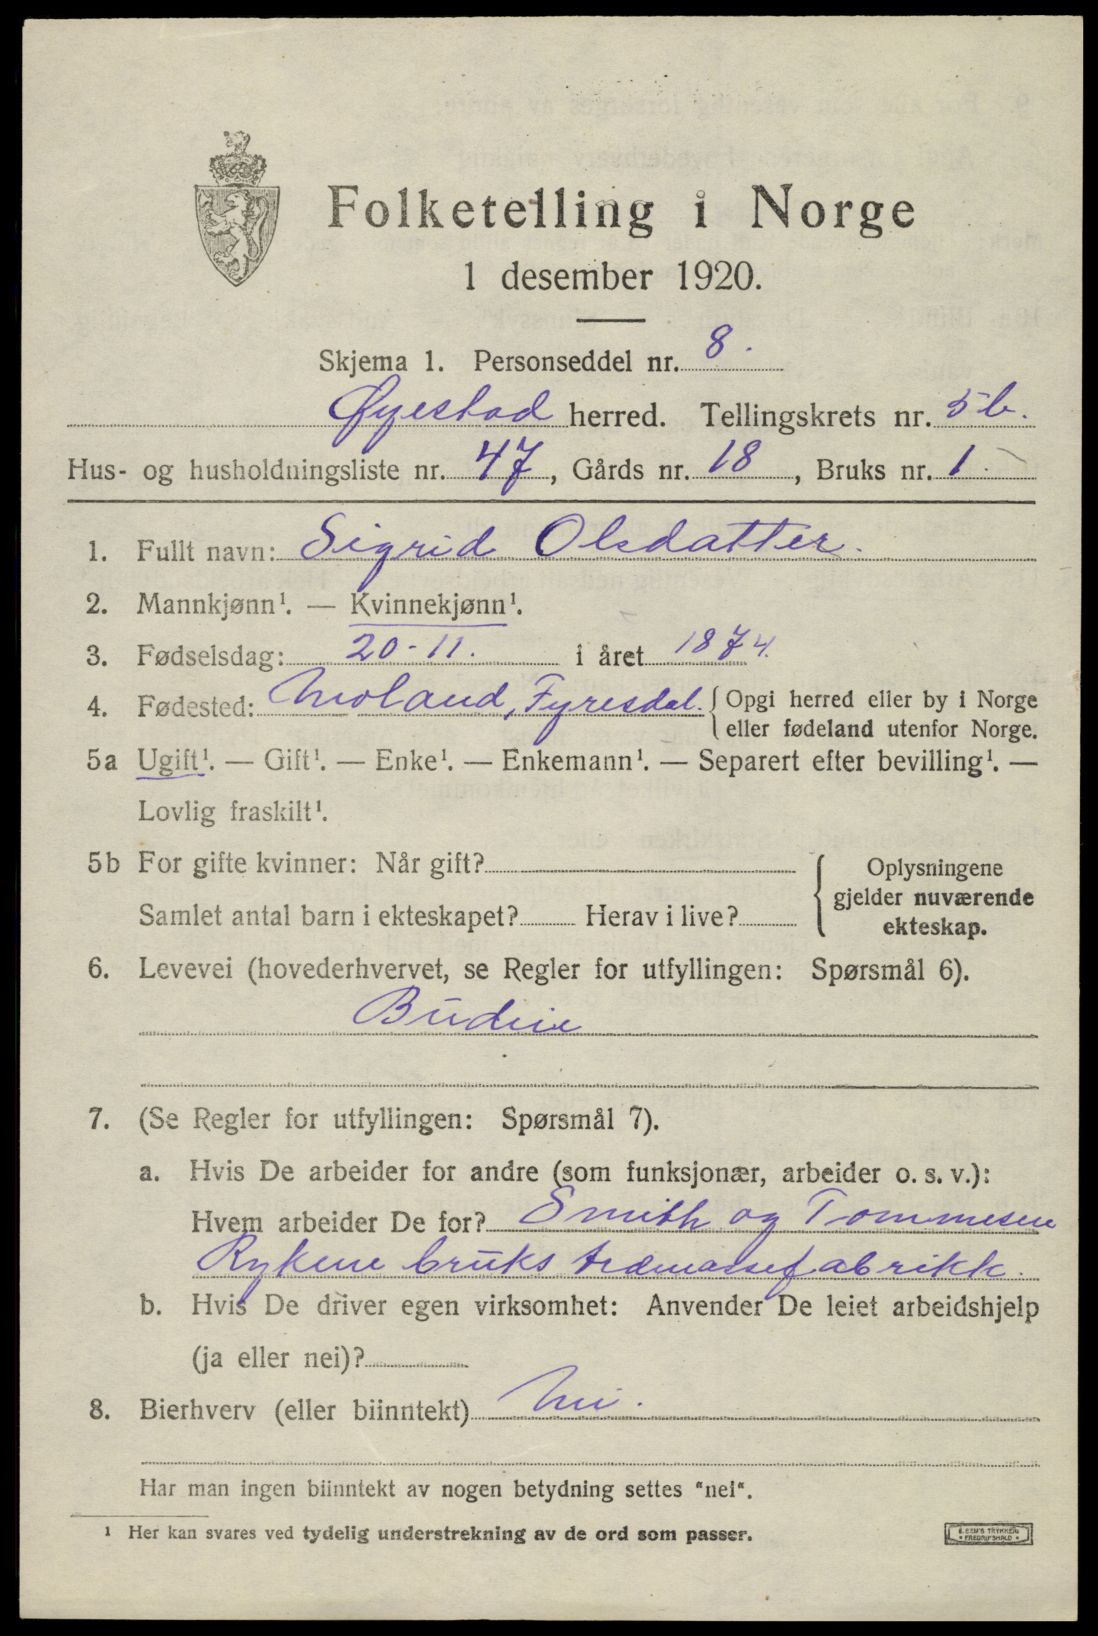 Folketelling i Norge
1 desember 1920.
Skjema 1. Personseddel nr. 8.
Øyestad herred. Tellingskrets nr. 5b.
Hus- og husholdningsliste nr. 47, Gårds nr. 18, Bruks nr. 1.
1. Fullt navn: Sigrid Olsdatter.
2. Mannkjønn¹. — Kvinnekjønn¹.
3. Fødselsdag: 20-11. i året 1874.
4. Fødested: Moland, Fyresdal. Opgi herred eller by i Norge
eller fødeland utenfor Norge.
5a Ugift¹. — Gift¹. — Enke¹. — Enkemann¹. — Separert efter bevilling¹. —
Lovlig fraskilt¹.
5b For gifte kvinner: Når gift?
Samlet antal barn i ekteskapet? Herav i live?
Oplysningene
gjelder nuværende
ekteskap.
6. Levevei (hovederhvervet, se Regler for utfyllingen: Spørsmål 6).
Budeie
7. (Se Regler for utfyllingen: Spørsmål 7).
a. Hvis De arbeider for andre (som funksjonær, arbeider o. s. v.):
Hvem arbeider De for? Smith og Tommesen
Rykene bruks tremassefabrikk.
b. Hvis De driver egen virksomhet: Anvender De leiet arbeidshjelp
(ja eller nei)?
8. Bierhverv (eller biinntekt) Nei.
Har man ingen biinntekt av nogen betydning settes "nei".
¹ Her kan svares ved tydelig understrekning av de ord som passer.
E. SEM'S TRYKKERI
• FREDRIKSHALD •